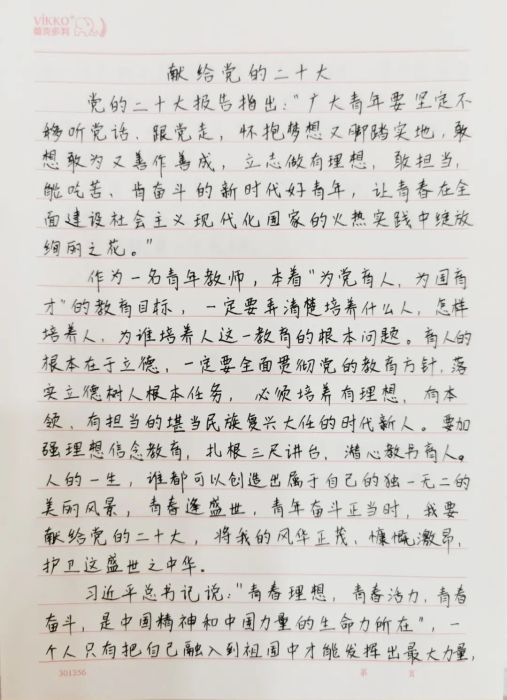 VIKKO
维克多利
献给党的二十大
党的二十大报告指出："广大青年要坚定不
移听党话、跟党走，怀抱梦想又脚踏实地，敢
想敢为又善作善成，立志做有理想，敢担当，
能吃苦、肯奋斗的新时代好青年，让青春在全
面建设社会主义现代化国家的火热实践中绽放
绚丽之花。"
作为一名青年教师，本着"为党育人，为国育
才"的教育目标，一定要弄清楚培养什么人，怎样
培养人，为谁培养人这一教育的根本问题。育人的
根本在于立德，一定要全面贯彻党的教育方针，落
实立德树人根本任务，必须培养有理想，有本
领、有担当的堪当民族复兴大任的时代新人。要加
强理想信念教育，扎根三尺讲台，潜心教书育人。
人的一生，谁都可以创造出属于自己的独一无二的
美丽风景，青春逢盛世，青年奋斗正当时，我要
献给党的二十大，将我的风华正茂、慷慨激昂，
护卫这盛世之中华。
习近平总书记说："青春理想，青春活力，青春
奋斗，是中国精神和中国力量的生命力所在"，一
个人只有把自己融入到祖国中才能发挥出最大力量，
301256 第 页